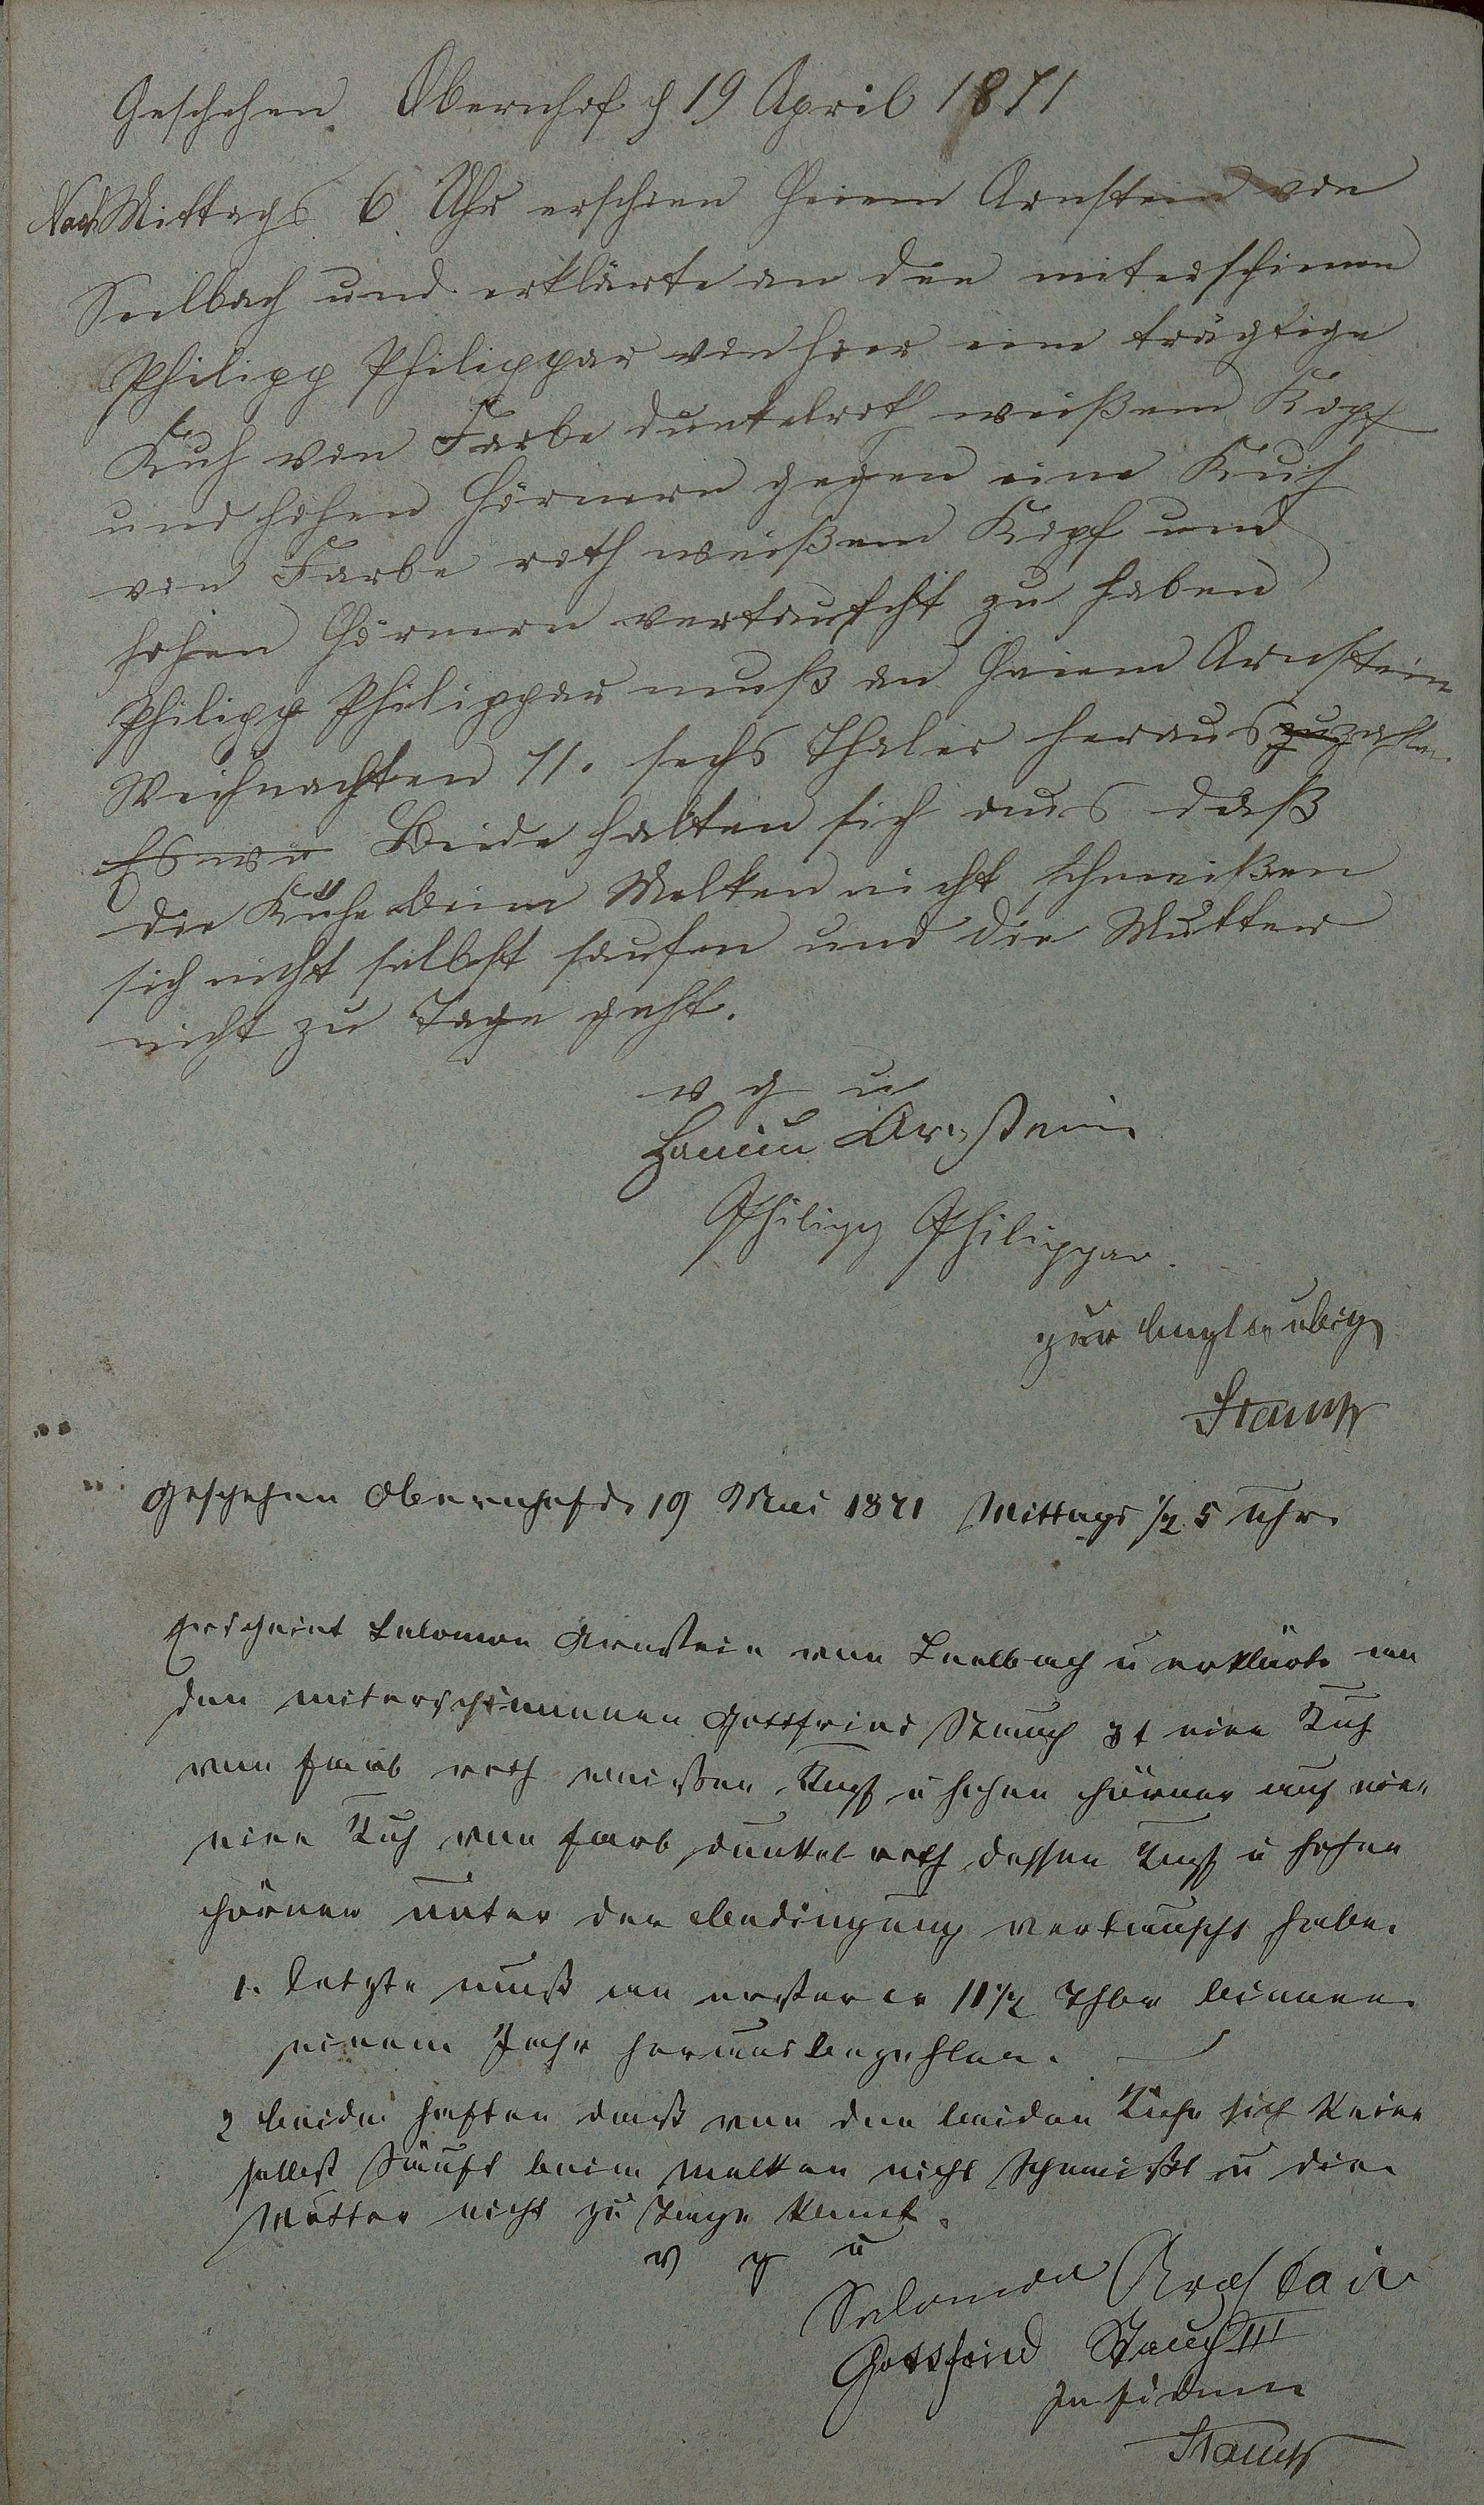 Geschehen Obernhof d 19 April 1871
NachMittags 6 Uhr erschien Heium Arnstein von
Seelbach und erklärte an den miterschienen
Philipp Philippar von hier eine trägtige
Kuh von Farbe dunkelroth weißem Kopf
und hohen Hörnern gegen eine Kuh
von Farbe roth weißem Kopf und
hohen Hörnern vertauscht zu haben
Philipp Philippar muß an Heium Arnstein
Weihnachten 71. sechs Thaler heraus zuzahlen.
Es wu Beide halten sich aus daß
die Kühe beim Melken nicht schmeißen
sich nicht selbst saufen und die Mutter
nicht zu Tage geht.
v g u
Arnstein
Philipp Philippar.
zur beglaubig
Stauch
Geschehen Obernhof d. 19 Mai 1871 Mittags 1/2 5 Uhr.
Erscheint Salomon Arnstein von Seelbach u erklärte an
den miterschienenen Gottfried Stauch 3t eine Kuh
von farb roth weißen Kopf u hohen Hörner auf
eine Kuh von farb dunkel roth dessen Kopf u hohen
Hörner unter der bedingung vertauscht habe.
1. letzte muß an erstere 11 1/2 Thlr binnen
einem Jahr herausbezahlen.
2 beide haften daß von den beiden Kühe sich keine
selbst säuft beim melken nicht schmeißt u die
Mutter nicht zu Tage kemt.
v g u
Salomon Arnstein
Gottfried Stauch III
In fidem
Stauch